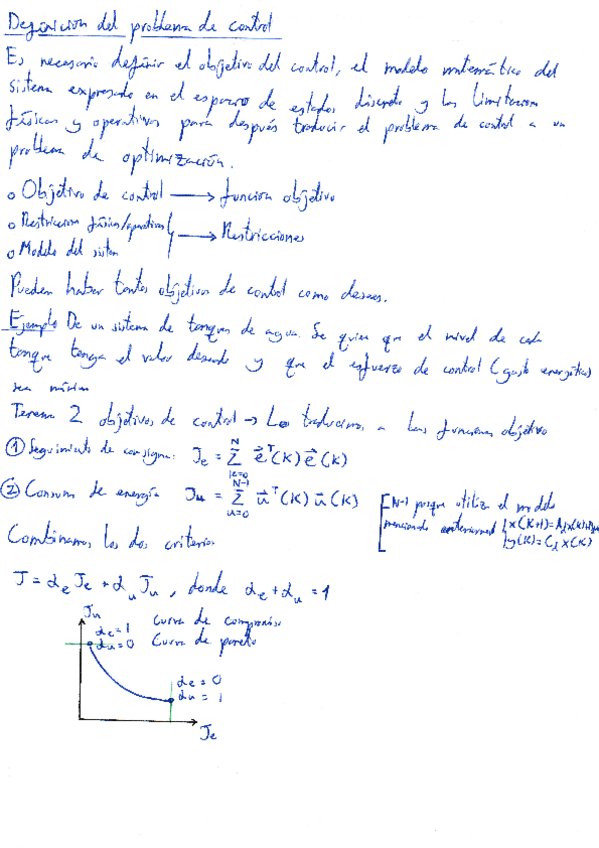 Definicion del problema de control
Es necesario definir el objetivo del control, el modelo matemático del
sistema expresado en el espacio de estados discreto y las limitaciones
físicas y operativas para después traducir el problema de control a un
problema de optimización.
o Objetivo de control → funcion objetivo
o Restricciones físicas/operativas
→ Restricciones
o Modelo del sistema
Pueden haber tantos objetivos de control como desees.
Ejemplo De un sistema de tanques de agua. Se quiere que el nivel de cada
tanque tenga el valor deseado y que el esfuerzo de control (gasto energético)
sea mínimo
Tenemos 2 objetivos de control → Los traducimos a las funciones objetivo
① Seguimiento de consigna: Je = Σ e^T(K) e(K)
② Consumo de energía Ju = Σ u^T(K) u(K)
[N-1 porque utiliza el modelo
mencionado anteriormente
y(K)=Cd x(K)
Combinamos los dos criterios
J = αe Je + αu Ju, donde αe + αu = 1
Ju
αe = 1
αu = 0
Curva de compromiso
Curva de pareto
αe = 0
αu = 1
Je